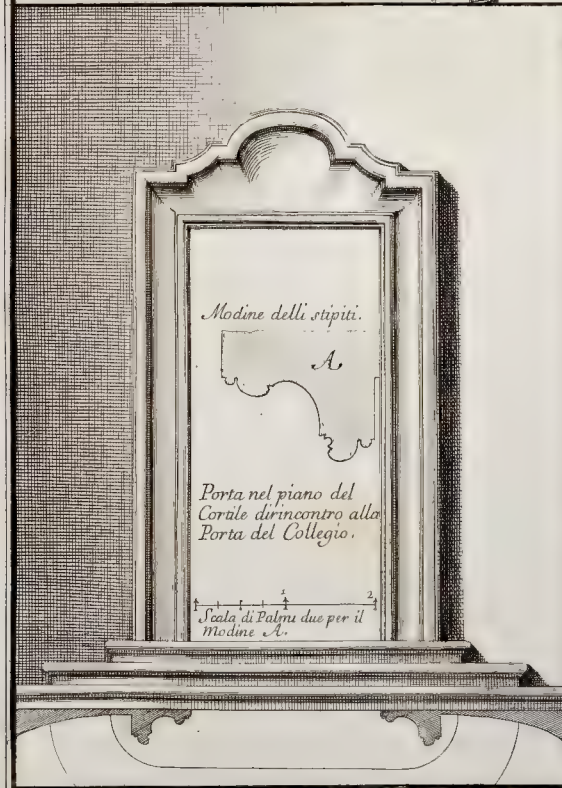 Modine delli stipiti.
A
Porta nel piano del
Cortile dirincontro alla
Porta del Collegio.
1 2
Scala di Palmi due per il
Modine A.